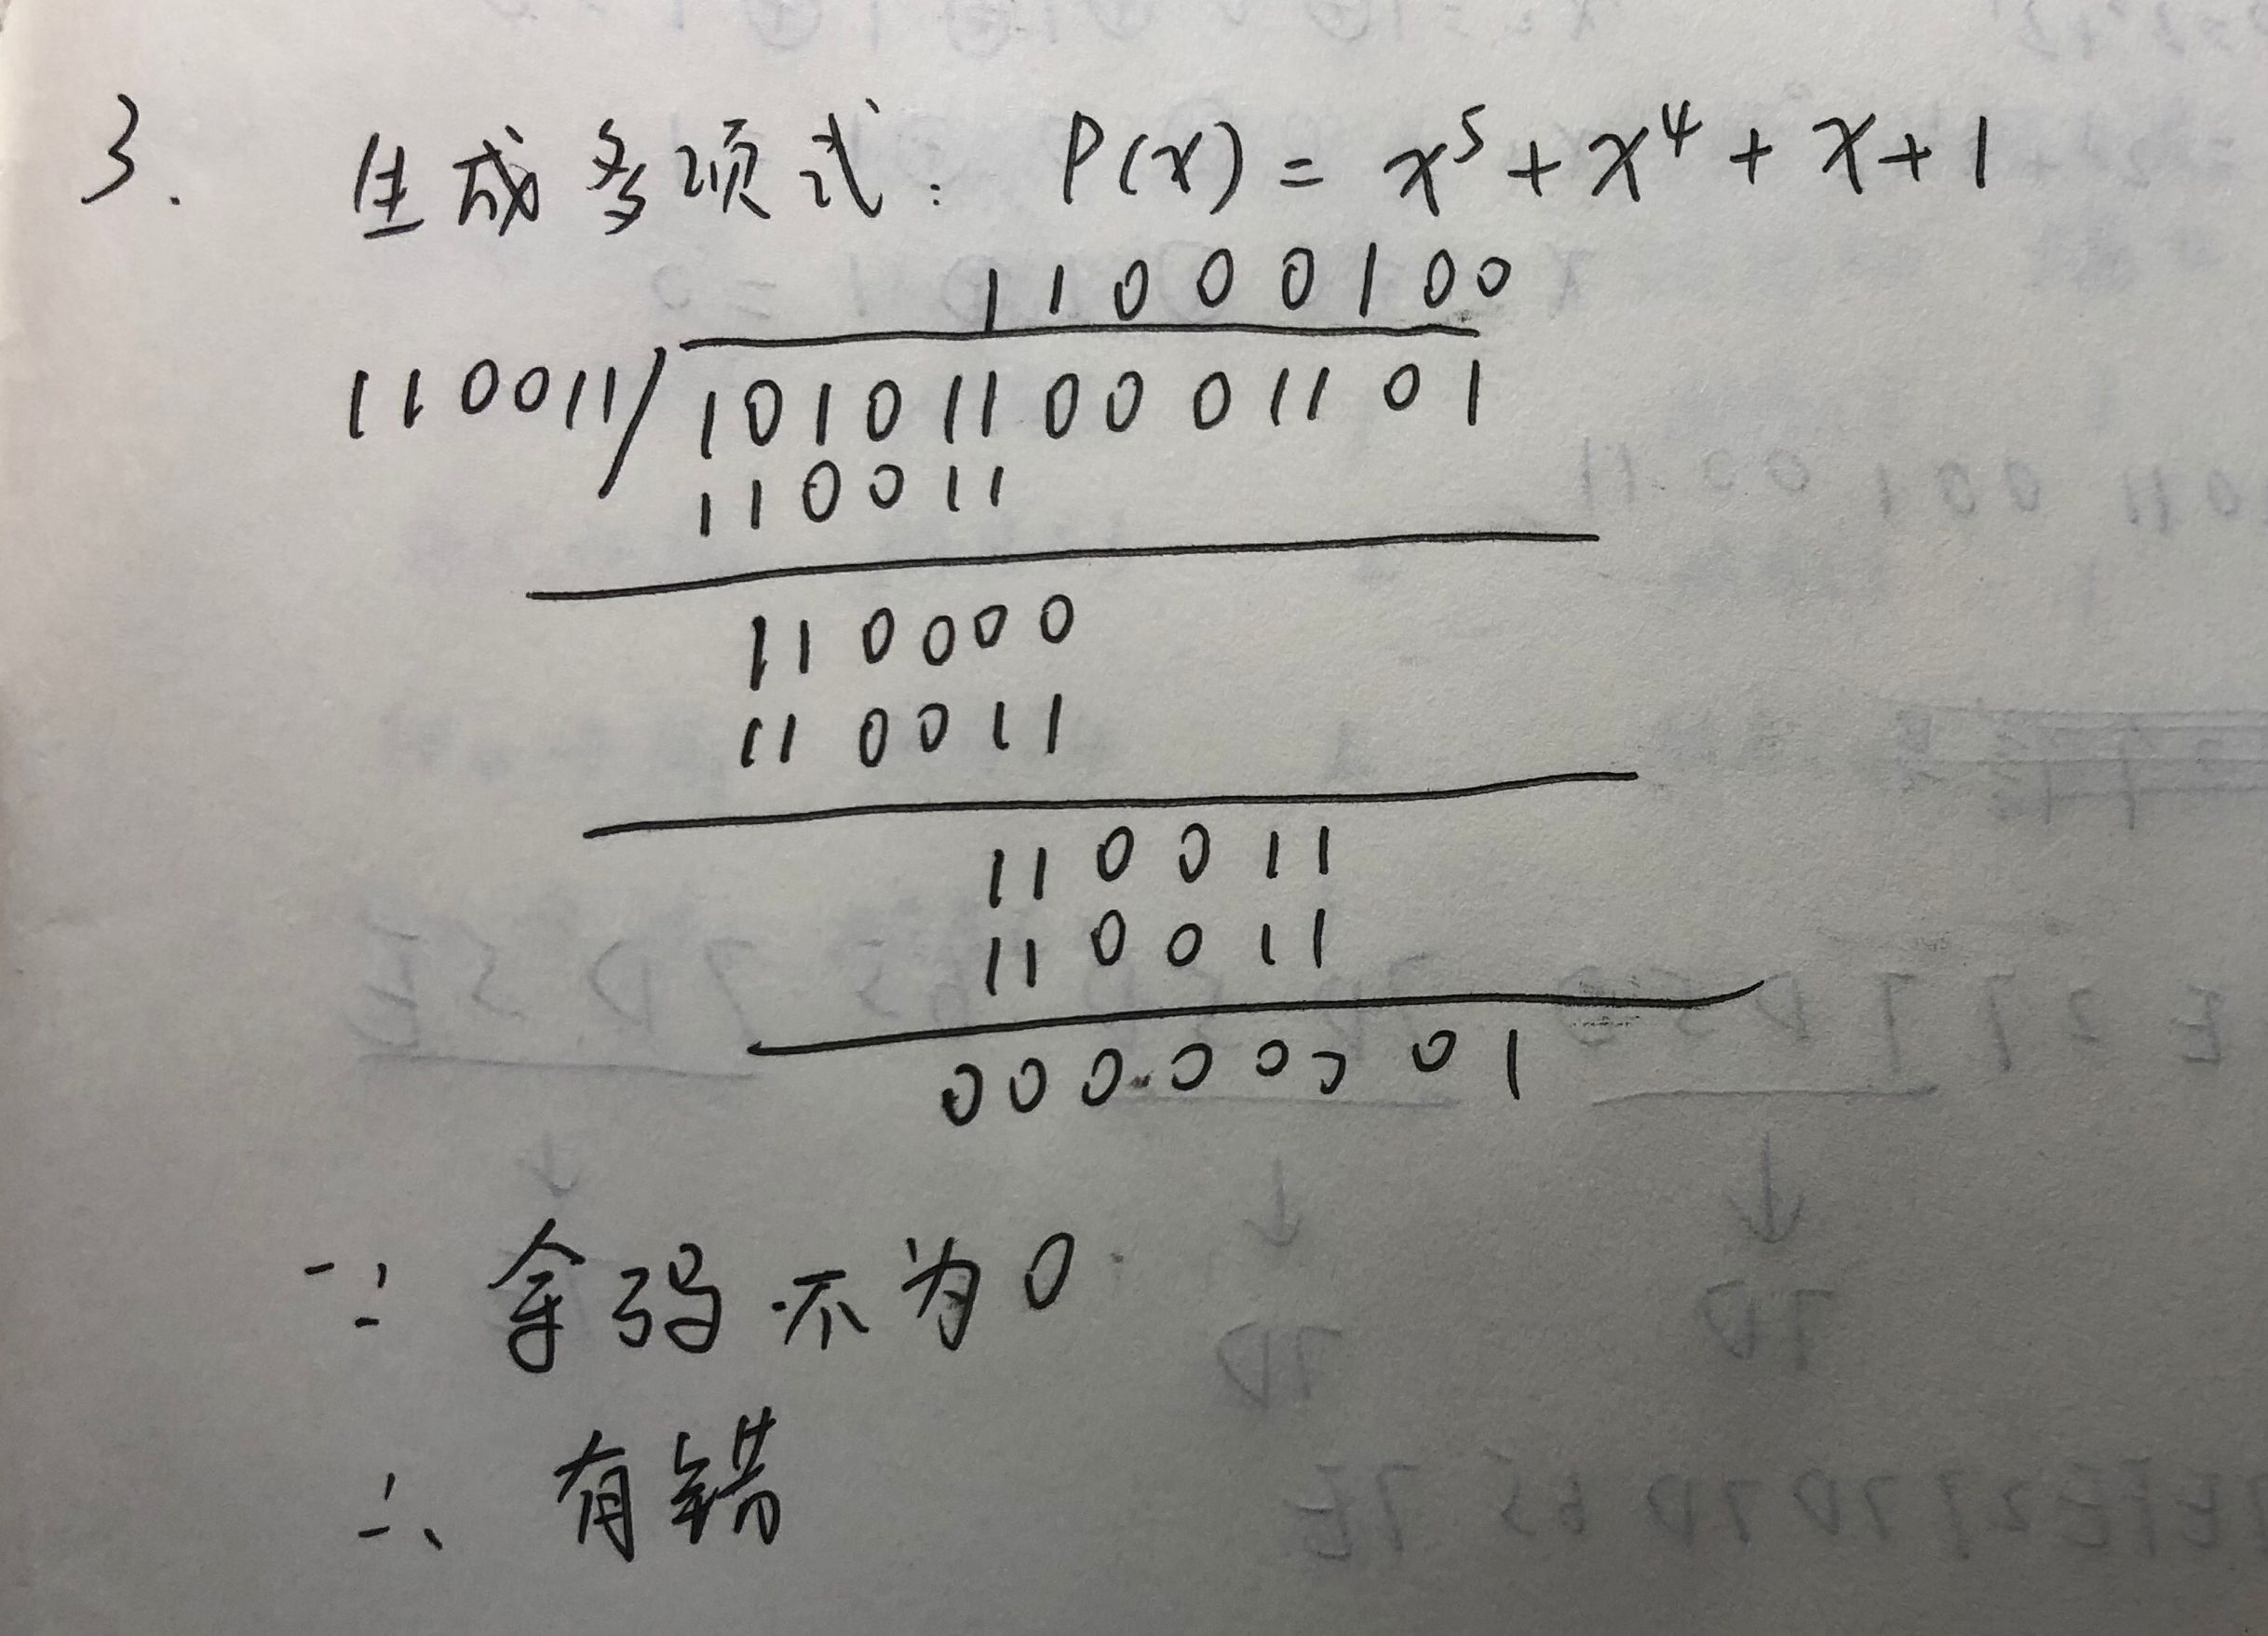 3. 生成多项式: P(x) = x⁵ + x⁴ + x + 1
11000100
110011/1010110001101
110011
110000
110011
110011
110011
00000001
∵ 余码不为0
∴ 有错